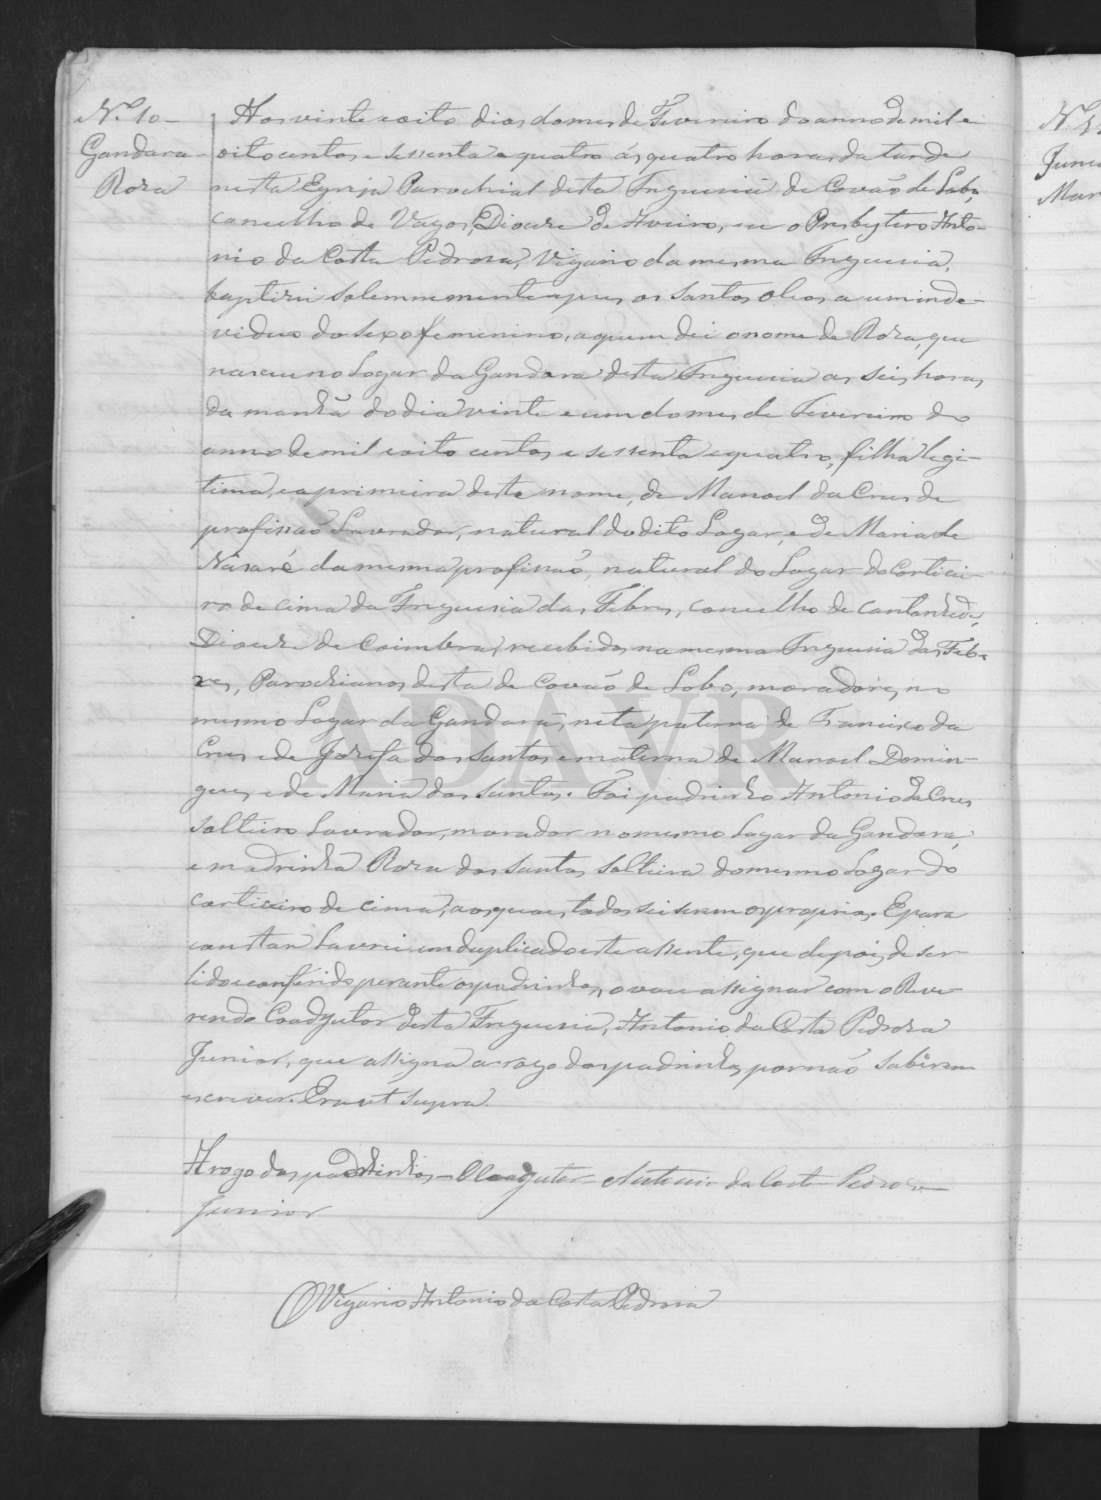 Nº 10
Gandara
Roza
Aos vinte e oito dias do mes de Fevereiro do anno de mil e
oito centos e sessenta e quatro ás quatro horas da tarde
nesta Egreja Parochial desta Freguesia de Covão de Lobo,
concelho de Vagos, Diocese de Aveiro, eu o Presbytero Anto-
nio da Costa Pedrosa, Vigario da mesma Freguesia,
baptizei solemnemente e pus os Santos Oleos a um inde-
viduo do sexo femenino, a quem dei o nome de Roza, que
nasceu no Logar da Gandara desta Freguesia as seis horas
da manhã do dia vinte e um do mes de Fevereiro do
anno de mil e oito centos e sessenta e quatro, filha legi-
tima, e a primeira deste nome, de Manoel da Crus de
profissaõ Lavrador, natural do dito Logar, e de Maria de
Názaré da mesma profissaõ, natural do Logar do Corticei-
ro de cima da Freguesia das Febres, concelho de Cantanhede,
Diocese de Coimbra, recebidos na mesma Freguesia das Feb-
res, Parochianos desta de Covaõ de Lobo, moradores no
mesmo Logar da Gandara, neta paterna de Francisco da
Crus e de Jozefa dos Santos e materna de Manoel Domin-
gues, e de Maria dos Santos. Foi padrinho Antonio da Crus
Solteiro Lavrador, morador no mesmo Logar da Gandara,
e madrinha Roza dos Santos Solteira do mesmo Logar do
Corticeiro de cima, aos quaes todos sei serem os proprios. E para
constar Lavrei em duplicado este assento, que depois de ser
lido e conferido perante os padrinhos, o vou assignar com o Reve-
rendo Coadjutor desta Freguesia, Antonio da Costa Pedroza
Junior, que assigna a rogo dos padrinhos por naõ saberem
escrever. Era ut supra.
A rogo dos padrinhos - O Coadjutor Antonio da Costa Pedroza
Junior
O Vigario Antonio da Costa Pedrosa
ADAVR
Mar